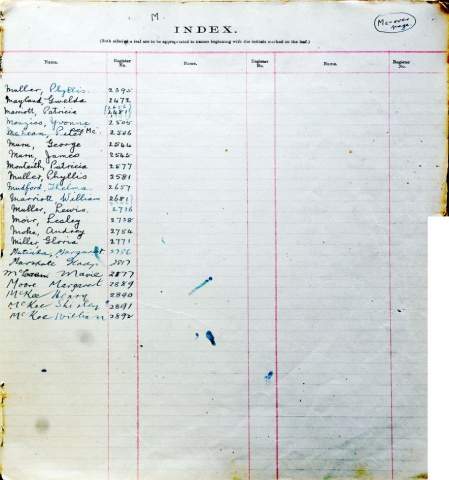 M
INDEX.
Mc-over page
(Both sides of a leaf are to be appropriated to names beginning with the initials marked on the leaf.)
Name. Register No. Name. Register No. Name. Register No.
Mullar, Phyllis. 2395
Mayland, Gwelda 2472
Marriott, Patricia 2481
Menzies, Yvonne 2505
McLean, Peter see Mc. 2506
Munn, George 2544
Munn, James 2545
Monteith, Patricia 2577
Muller, Phyllis 2581
Mudford, Thelma 2657
Marriott William 2681
Muller, Lewis. 2716
Moir, Lesley 2728
Moke, Audrey 2754
Miller Gloria 2771
Margaret 2756
Marshall Gladys 2817
Marie 2877
Moore Margaret 2889
McKee Henry 2890
McKee Shirley 2891
McKee William 2892